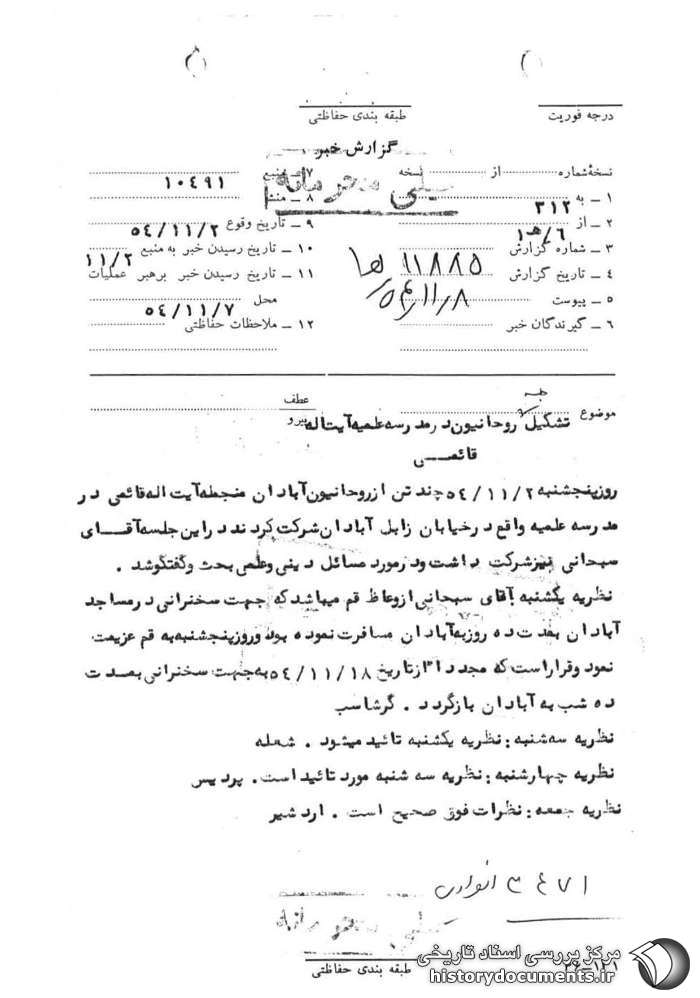 درجه فوریت
طبقه بندی حفاظتی
گزارش خبر
خیلی محرمانه
نسخهٔ شماره از نسخه
۱ ـ به ۳۱۲
۲ ـ از ۶/ه‍۱
۳ ـ شماره گزارش ۱۱۸۸۵
۴ ـ تاریخ گزارش ۵۴/۱۱/۸
۵ ـ پیوست
۶ ـ گیرندگان خبر
۷ ـ منبع ۱۰۴۹۱
۸ ـ منشأ
۹ ـ تاریخ وقوع ۵۴/۱۱/۲
۱۰ ـ تاریخ رسیدن خبر به منبع ۱۱/۲
۱۱ ـ تاریخ رسیدن خبر برهبر عملیات
محل ۵۴/۱۱/۷
۱۲ ـ ملاحظات حفاظتی
عطف
پیرو
جلسه
موضوع تشکیل روحانیون در مدرسه علمیه آیت اله
قائمـــی
روز پنجشنبه ۵۴/۱۱/۲ چند تن از روحانیون آبادان منجمله آیت اله قائمی در
مدرسه علمیه واقع در خیابان زابل آبادان شرکت کردند در این جلسه آقـــای
سبحانی نیز شرکت داشت و در مورد مسائل دینی و علمی بحث و گفتگو شد .
نظریه یکشنبه آقای سبحانی از وعاظ قم میباشد که جهت سخنرانی در مساجد
آبادان بمدت ده روز به آبادان مسافرت نموده بود و روز پنجشنبه به قم عزیمت
نمود و قرار است که مجددا" از تاریخ ۵۴/۱۱/۱۸ به جهت سخنرانی بمدت
ده شب به آبادان بازگردد . گرشاسب
نظریه سه شنبه : نظریه یکشنبه تائید میشود . شعله
نظریه چهارشنبه : نظریه سه شنبه مورد تائید است . پردیس
نظریه جمعه : نظرات فوق صحیح است . اردشیر
خیلی محرمانه
طبقه بندی حفاظتی
مرکز بررسی اسناد تاریخی
historydocuments.ir